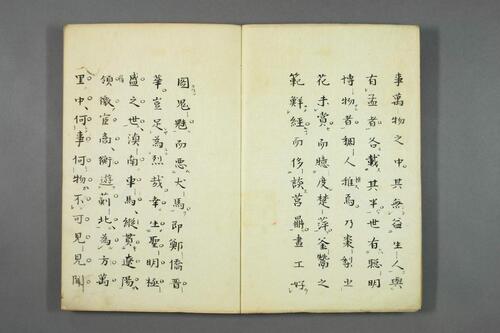 事萬物之中其無益生人與
有益者各載其半世有聰明
博物者稠人推焉乃棗梨之
花未賞而臆度楚萍釜鬵之
範鮮經而侈談莒鼎畫工好
圖鬼魅而惡犬馬即鄭僑晋
華豈足為烈哉幸生聖明極
盛之世滇南車馬縱貫遼陽
嶺徼宦商衡遊薊北為方萬
里中何事何物不可見見聞